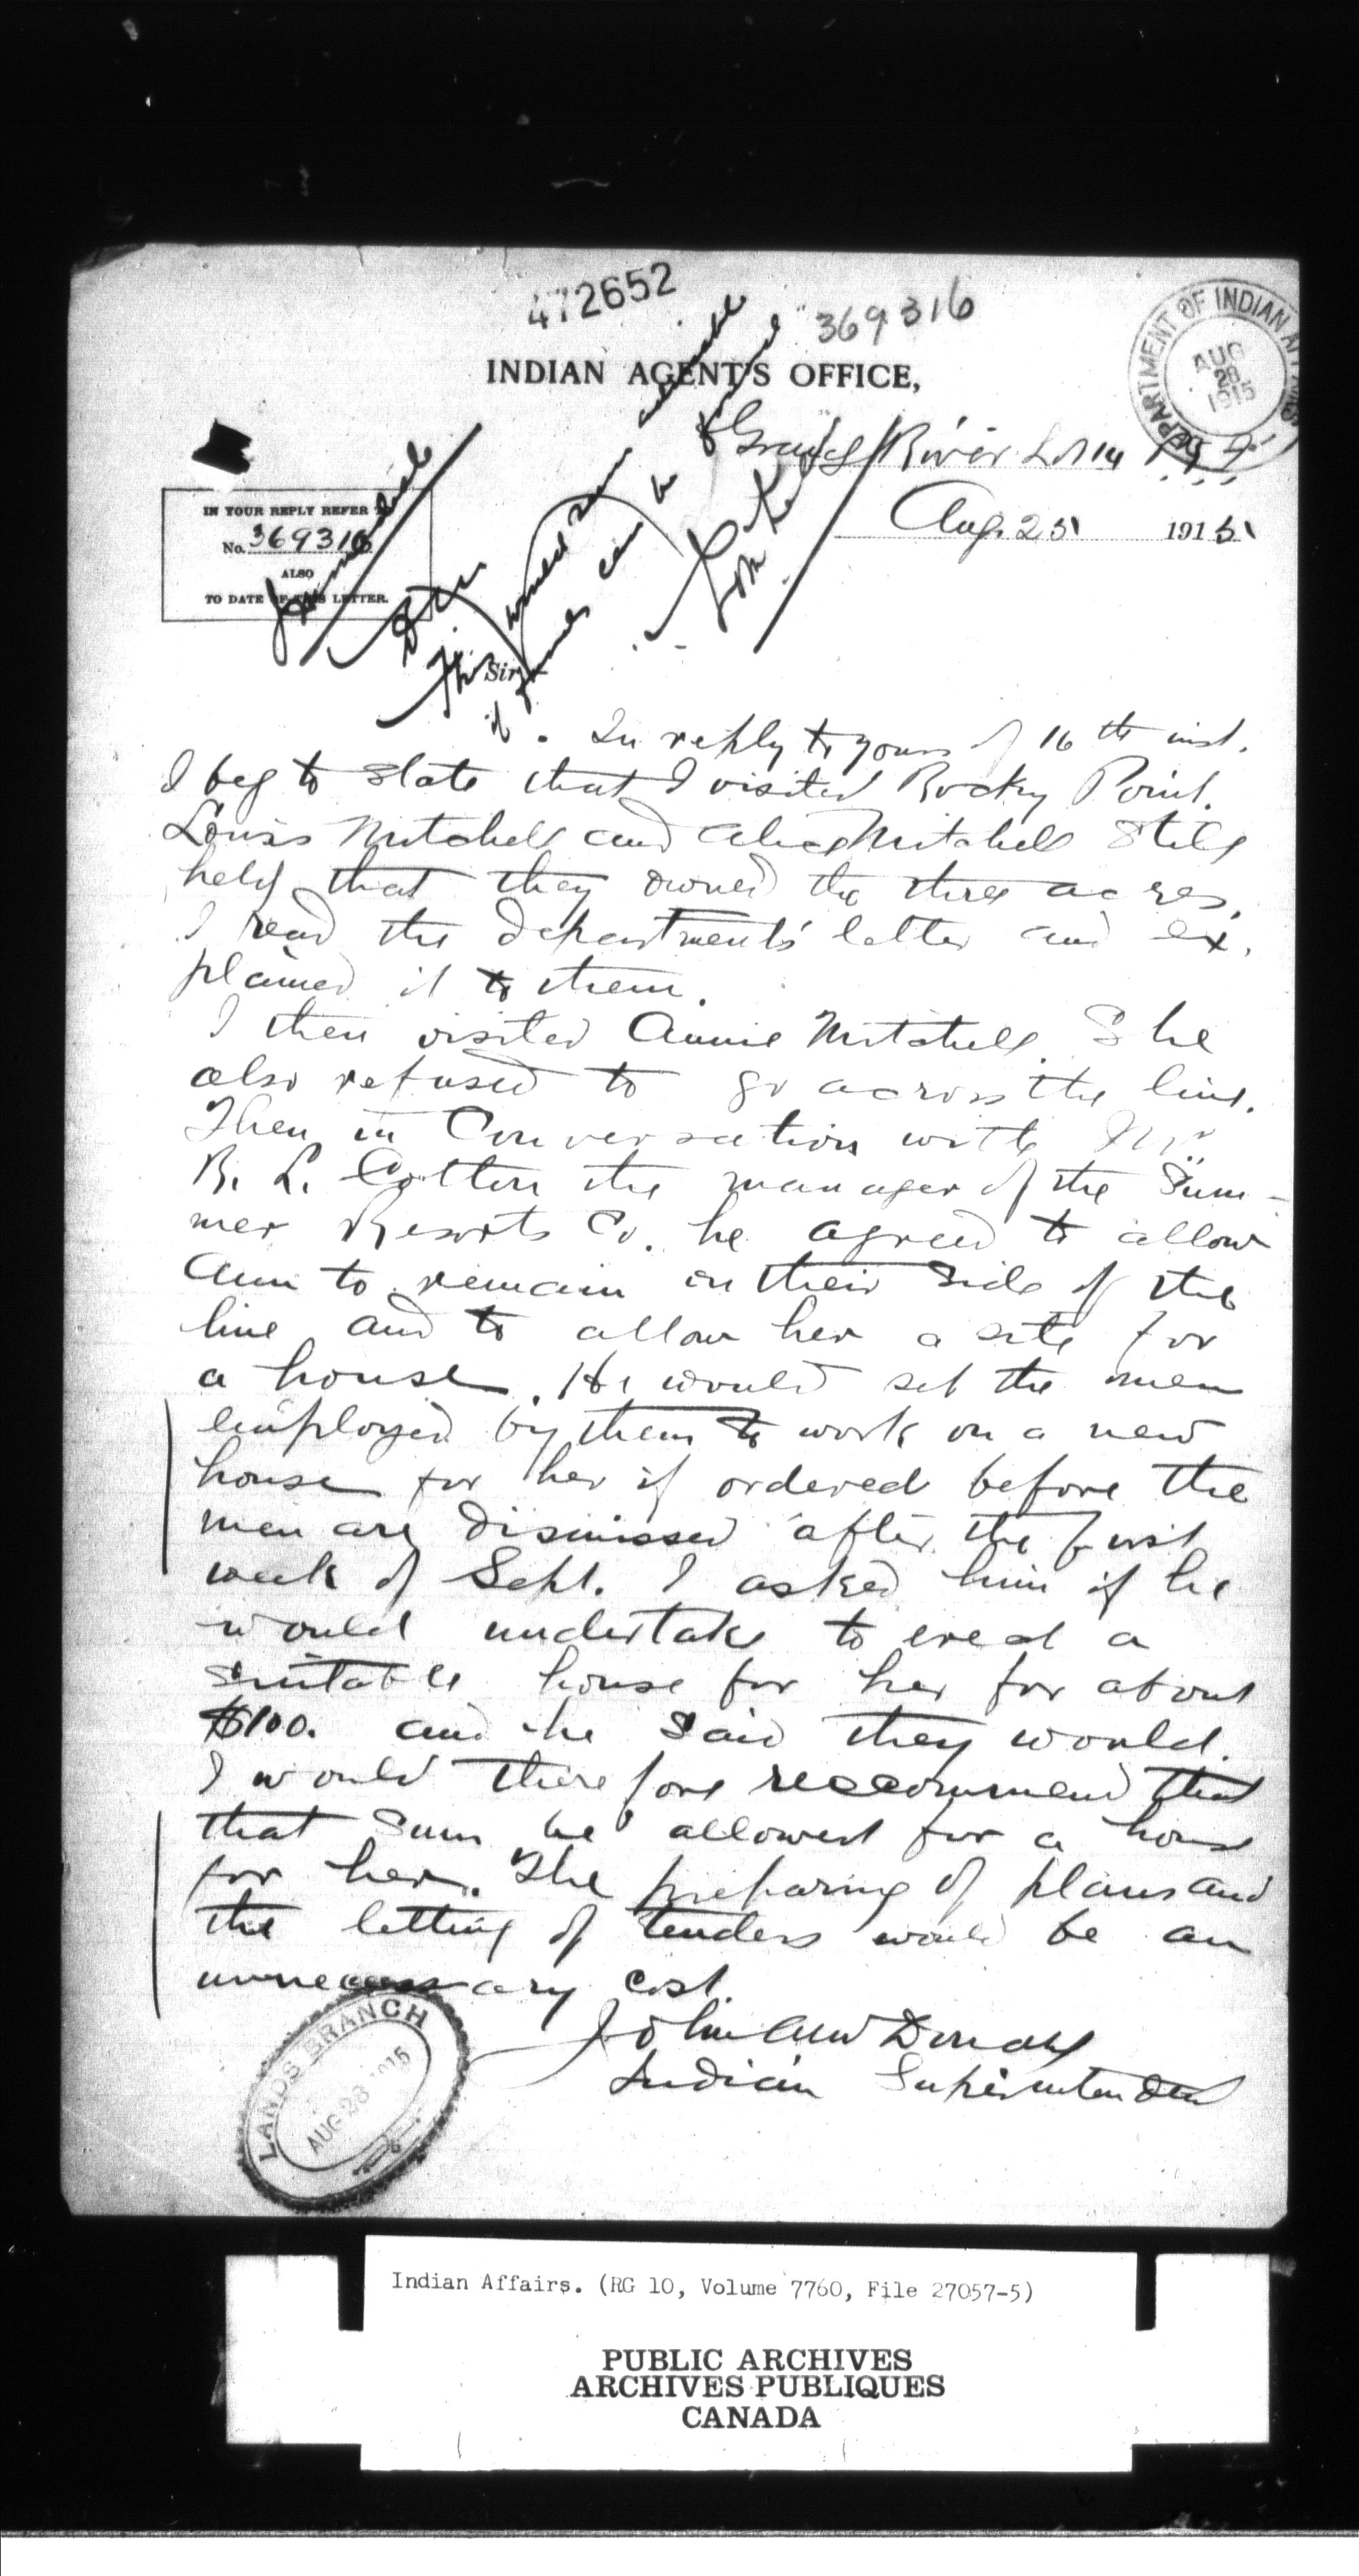 472652
369316
INDIAN AGENT'S OFFICE,
DEPARTMENT OF INDIAN AFFAIRS
AUG
28
1915
Grand River Lot 14
Aug. 25 1915
IN YOUR REPLY REFER TO
No. 369316
ALSO
TO DATE OF THIS LETTER.
This would seem advisable
if funds can be found
Sir,-
In reply to yours of 16th inst.
I beg to state that I visited Rocky Point.
Louis Mitchell and Alice Mitchell still
held that they owned the three acres.
I read the department's letter and ex.
plained it to them.
I then visited Annie Mitchell. She
also refused to go across the line.
Then in Conversation with Mr.
B. L. Cotton the manager of the Sum-
mer Resorts Co. he agreed to allow
Ann to remain on their side of the
line and to allow her a site for
a house. He would set the men
employed by them to work on a new
house for her if ordered before the
men are dismissed after the first
week of Sept. I asked him if he
would undertake to erect a
suitable house for her for about
$100. and he said they would.
I would therefore reccommend that
that sum be allowed for a house
for her. The preparing of plans and
the letting of tenders would be an
unnecessary cost.
John A McDonald
Indian Superintendent
LANDS BRANCH
AUG 28 1915
Indian Affairs. (RG 10, Volume 7760, File 27057-5)
PUBLIC ARCHIVES
ARCHIVES PUBLIQUES
CANADA